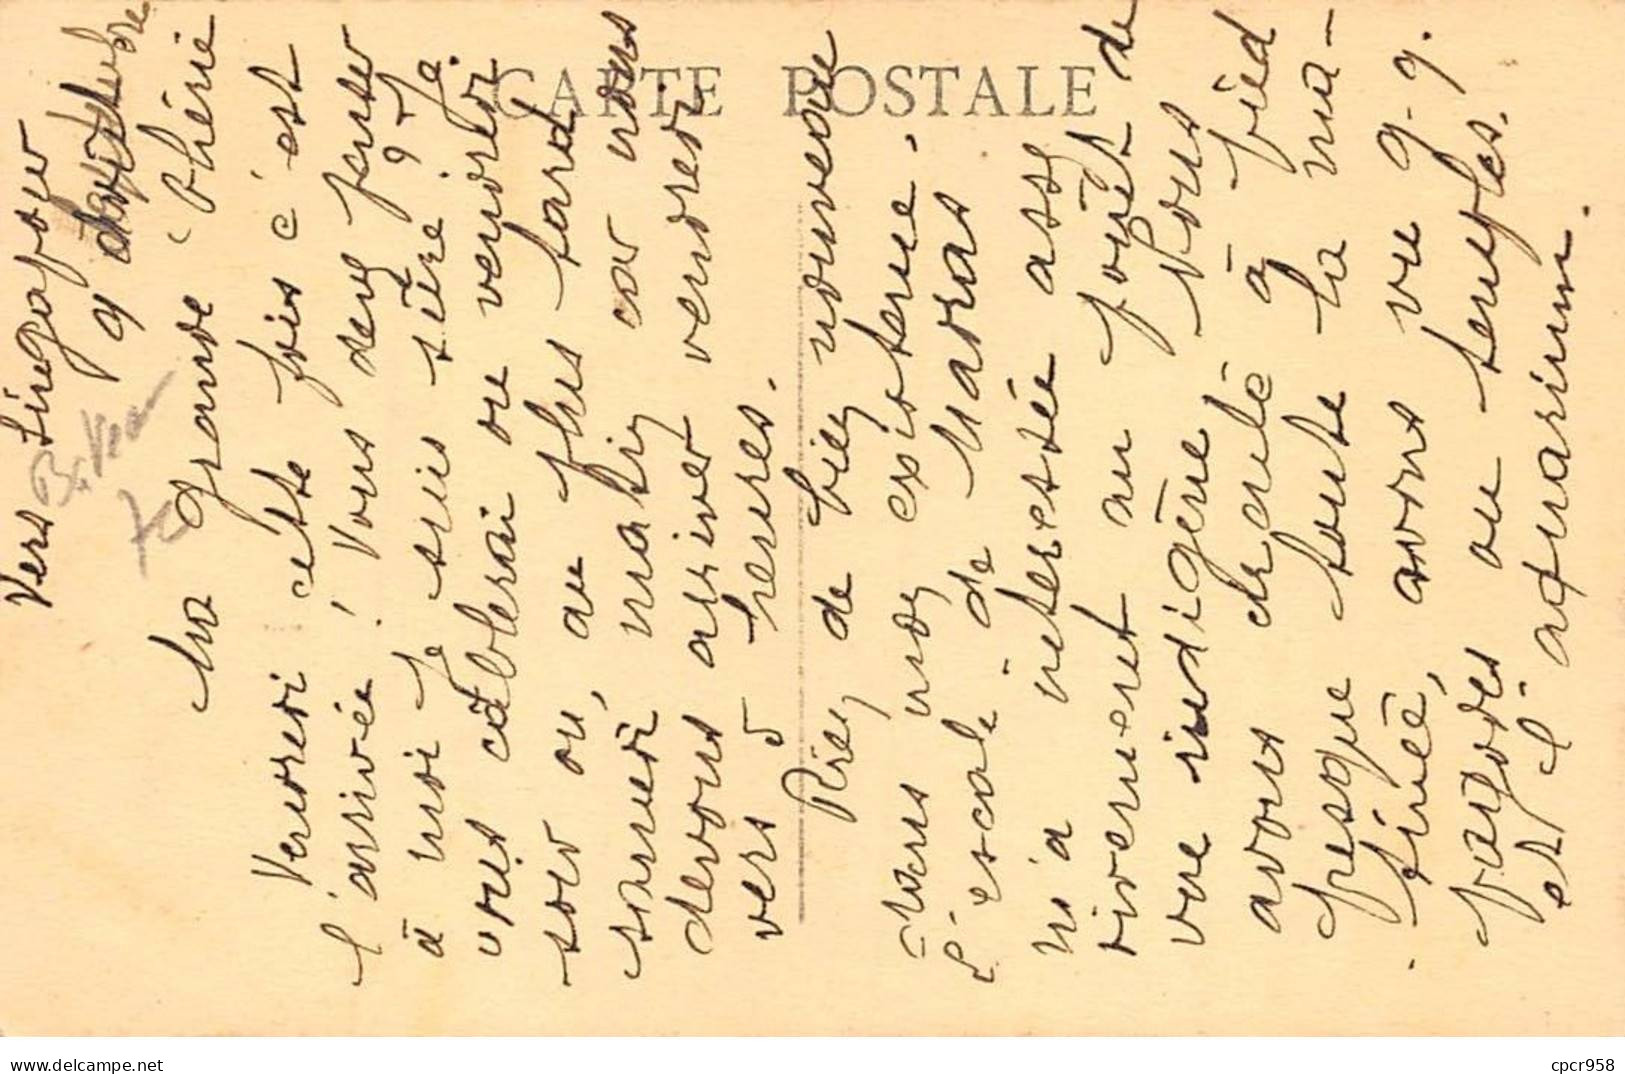 CARTE POSTALE
Vers Singapour
9 octobre
Ma grande Chérie
Vendredi cette fois c'est
l'arrivée ! Vous devez penser
à moi je suis sûre
vous câblerai ou vendredi
soir ou, au plus tard
samedi matin car nous
devons arriver vendredi
vers 5 heures.
Rien de bien nouveau
dans mon existence.
L'escale de Madras
m'a intéressée assez
vivement au point de
vue indigène. Nous
avons déambulé à pied
presque toute la ma-
tinée, avons vu q.q.
pagodes ou temples.
et l'aquarium.
delcampe.net
cpcr958